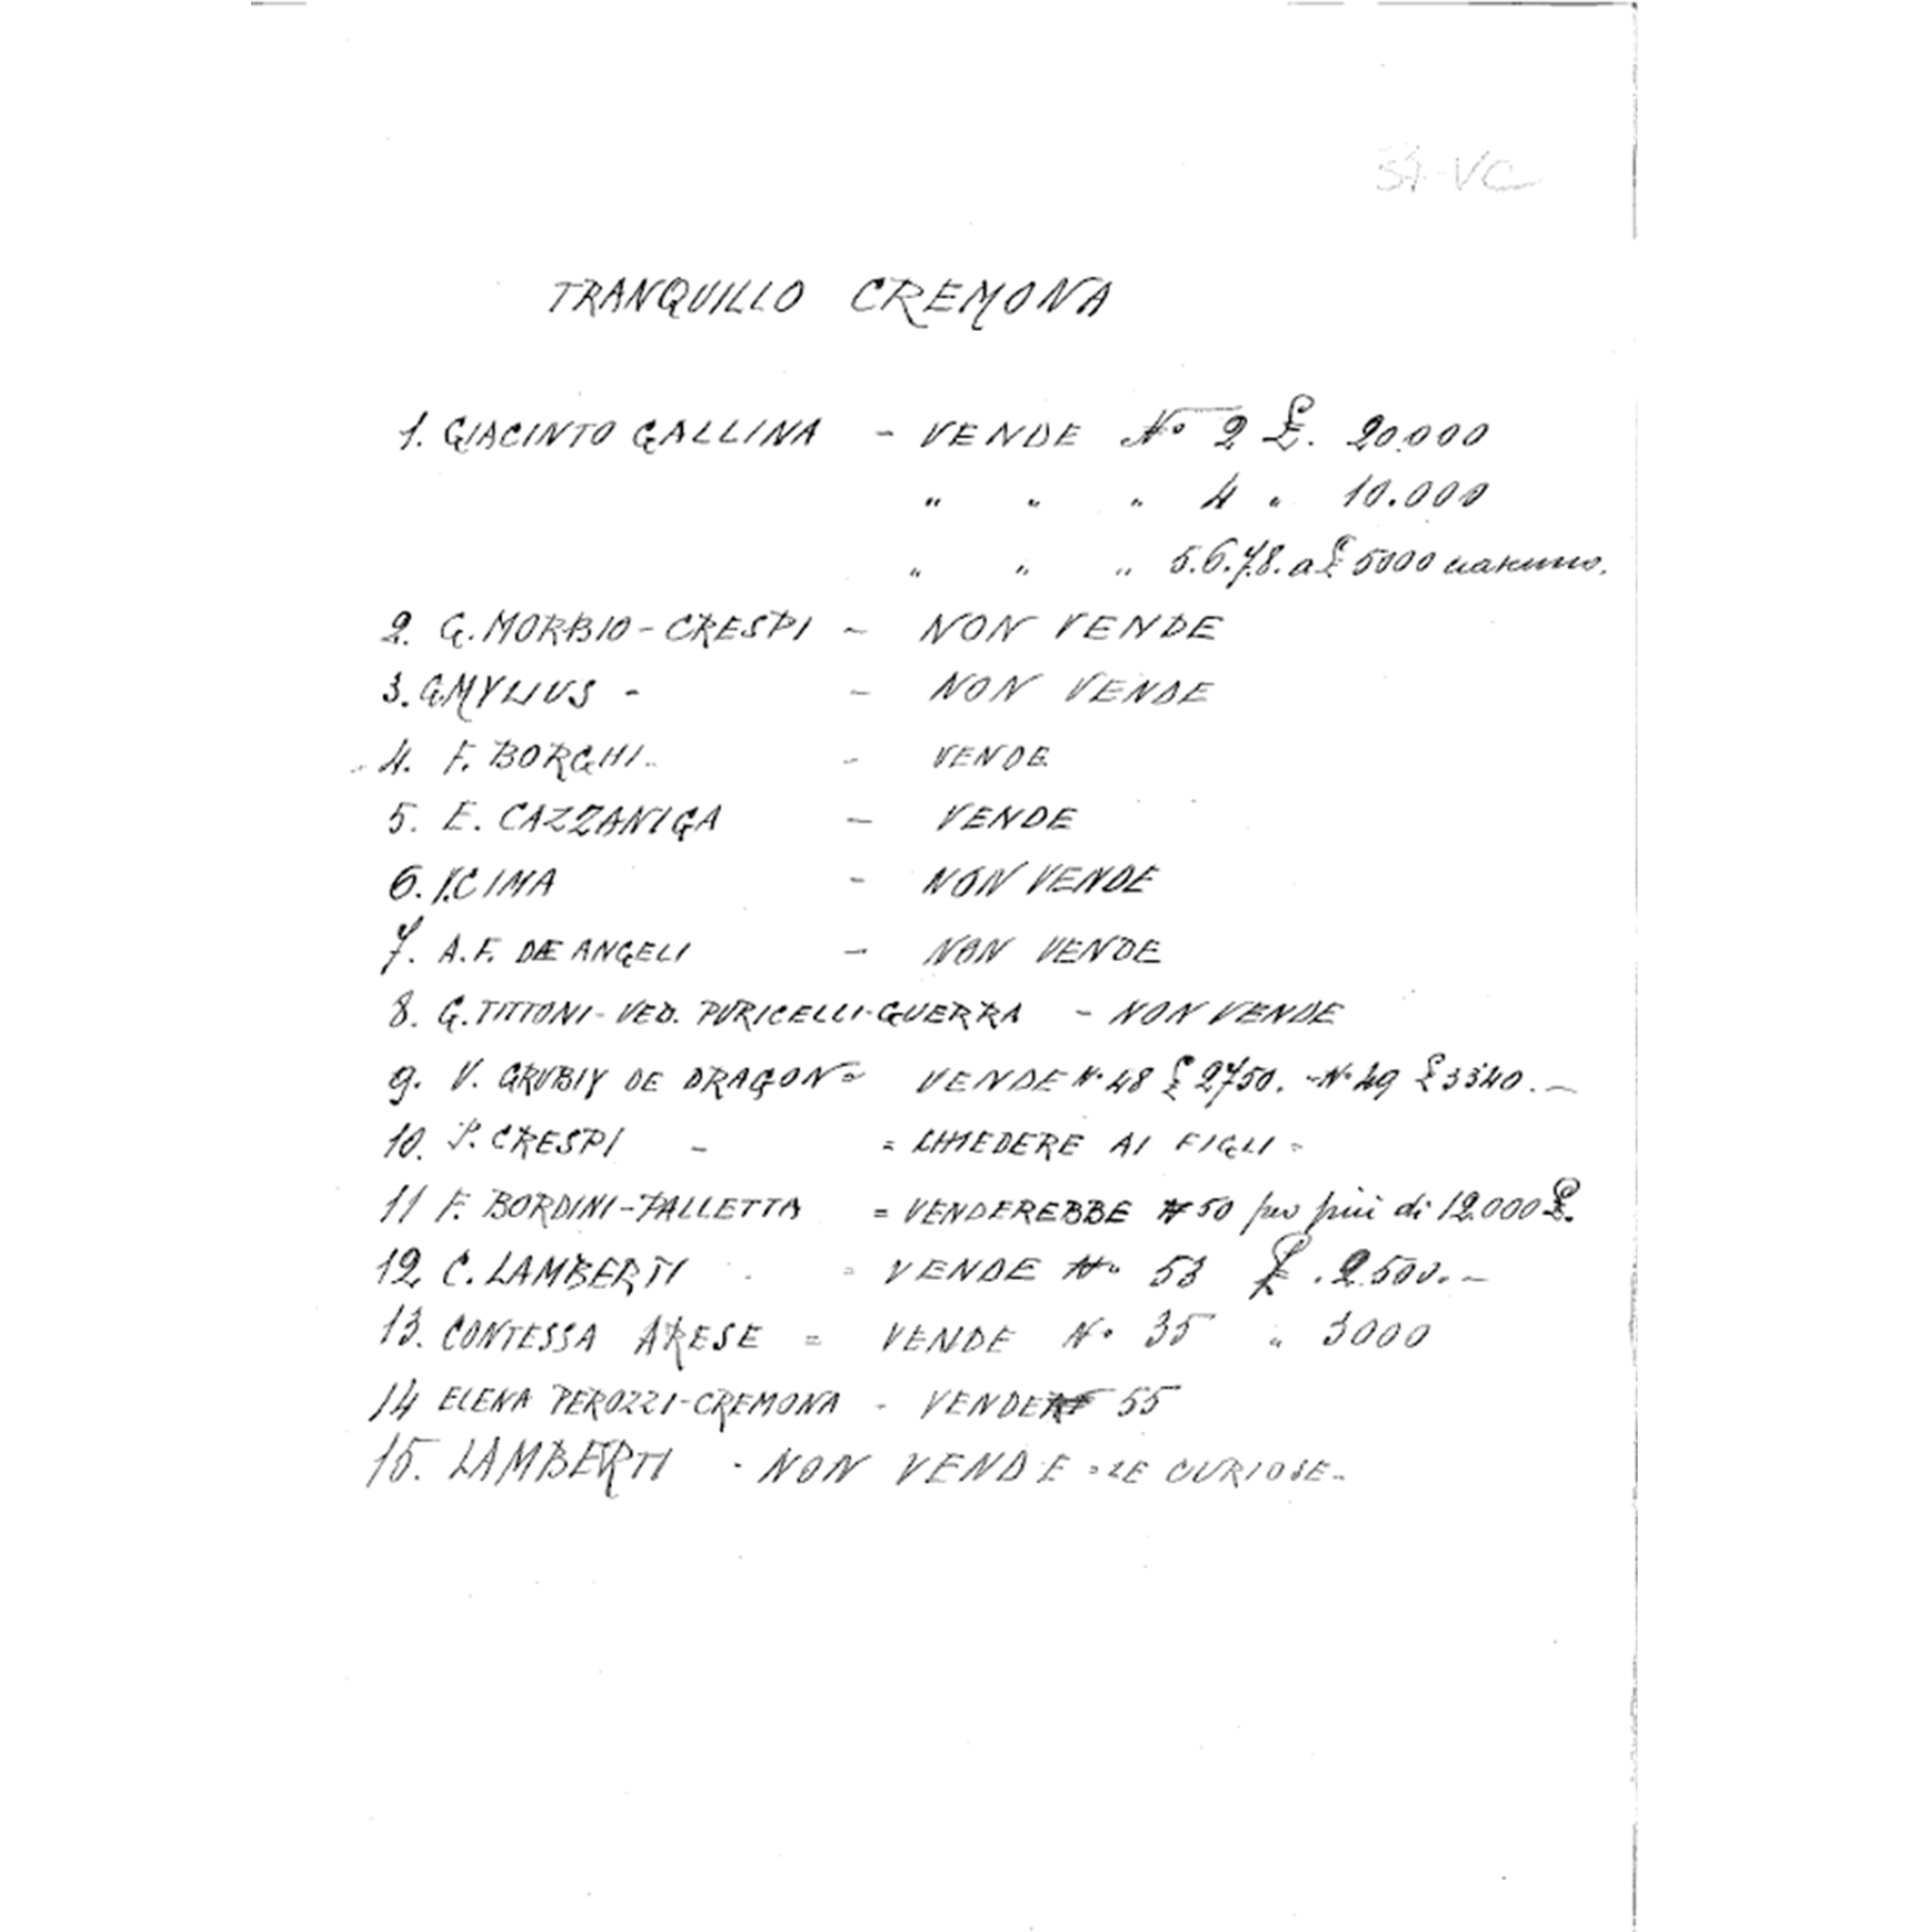 34-VC
TRANQUILLO CREMONA
1. GIACINTO GALLINA - VENDE No 2 £. 20.000
" " " 4 " 10.000
" " " 5.6.7.8. a £ 5000 ciascuno.
2. G. MORBIO-CRESPI - NON VENDE
3. G.MYLIUS - - NON VENDE
4. F. BORGHI - VENDE
5. E. CAZZANIGA - VENDE
6. CIMA - NON VENDE
7. A.F. DE ANGELI - NON VENDE
8. G. TITTONI-VED. PURICELLI-GUERRA - NON VENDE
9. V. GRUBIY DE DRAGON = VENDE N. 48 £ 2750. - No 49 £ 3340. -
10. P. CRESPI - = CHIEDERE AI FIGLI =
11 F. BORDINI-PALLETTA = VENDEREBBE N 50 per più di 12.000 £.
12 C. LAMBERTI = VENDE No 53 £. 2.500. -
13. CONTESSA ARESE = VENDE No 35 " 3000
14 ELENA PEROZZI-CREMONA - VENDE 55
15. LAMBERTI - NON VENDE = LE CURIOSE -